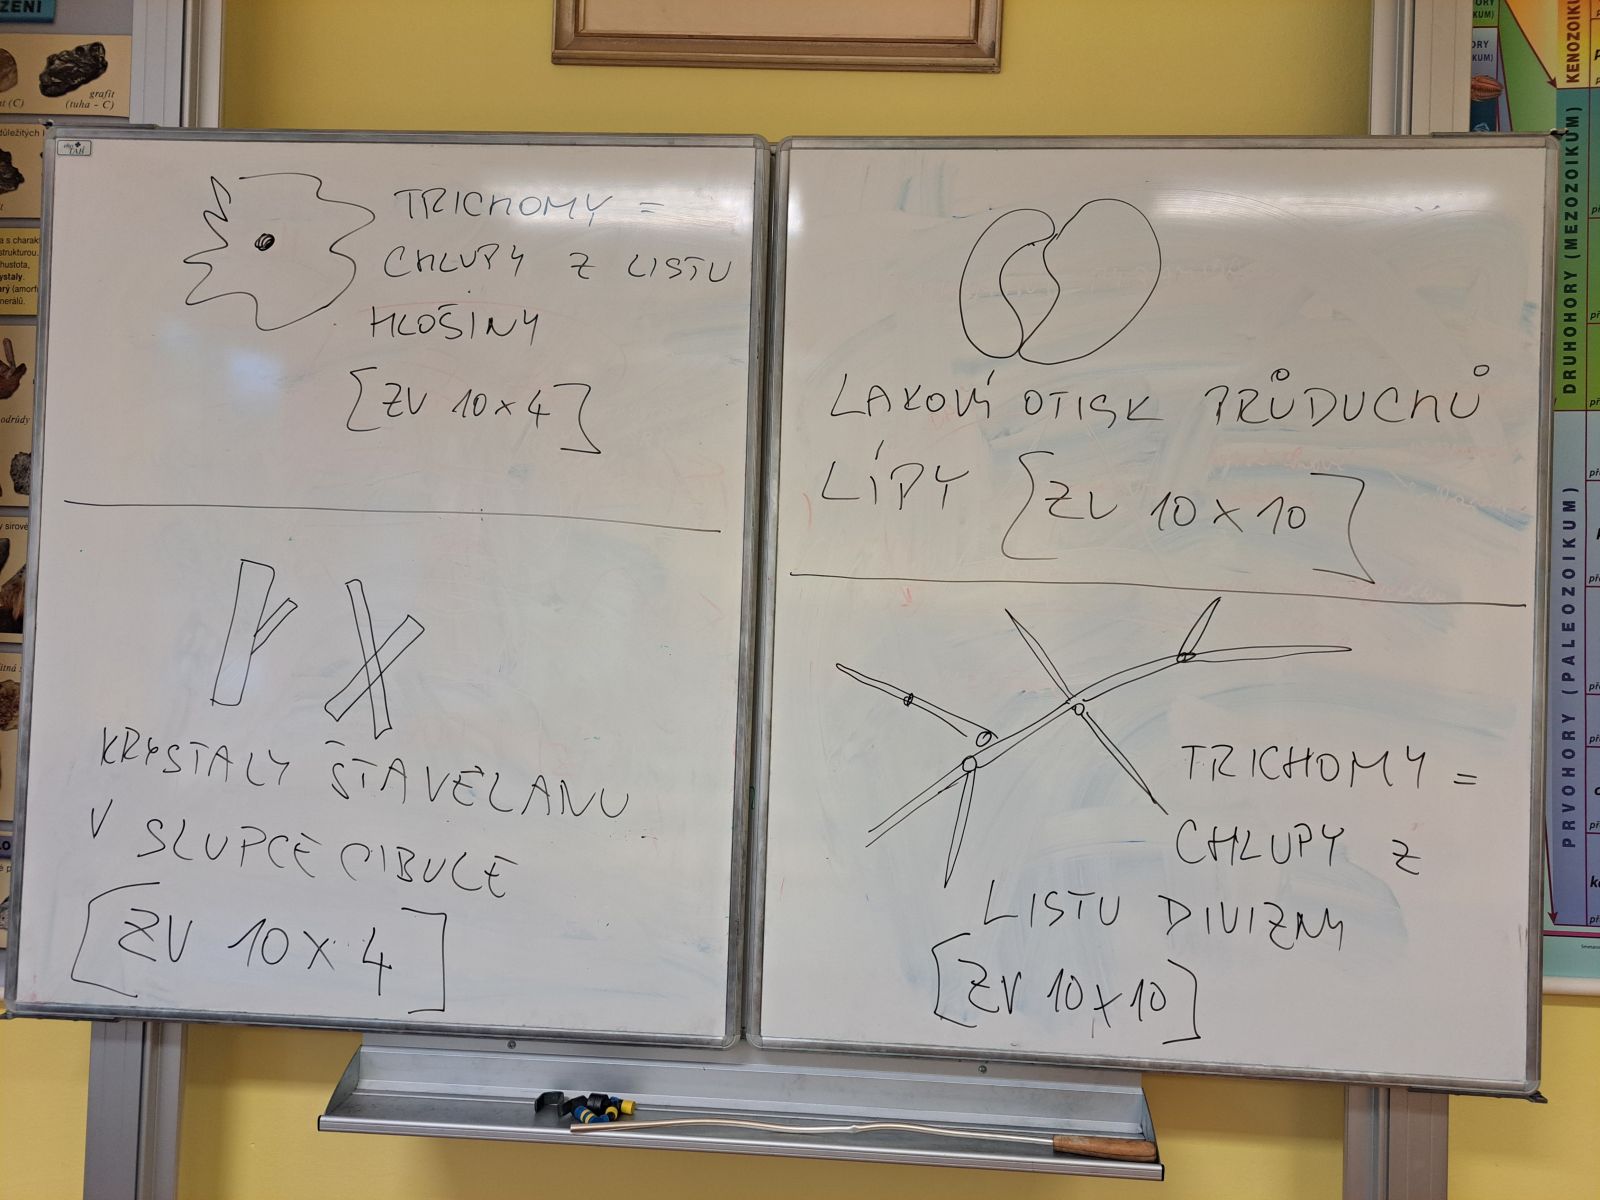 ZENÍ
grafit
(tuha – C)
TRICHOMY =
CHLUPY Z LISTU
HLOŠINY
[ZV 10 x 4]
KRYSTALY ŠTAVELANU
V SLUPCE CIBULE
[ZV 10 x 4]
LAKOVÝ OTISK PRŮDUCHŮ
LÍPY [ZV 10 x 10]
TRICHOMY =
CHLUPY Z
LISTU DIVIZNY
[ZV 10 x 10]
DRUHOHORY (MEZOZOIKUM)
PRVOHORY (PALEOZOIKUM)